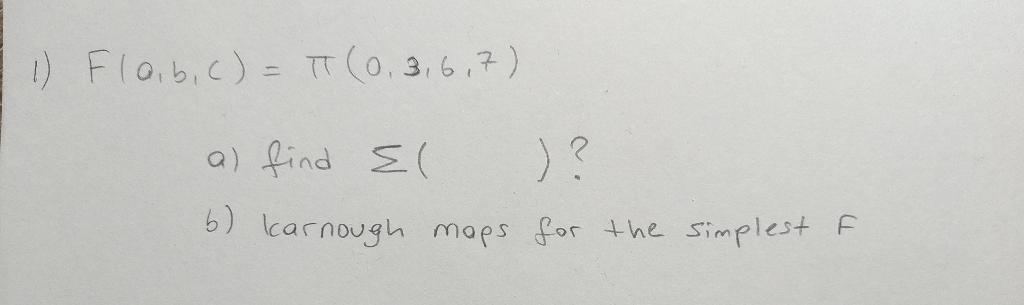 1) F(a,b,c) = π(0,3,6,7)
a) find Σ( )?
b) karnough maps for the simplest F